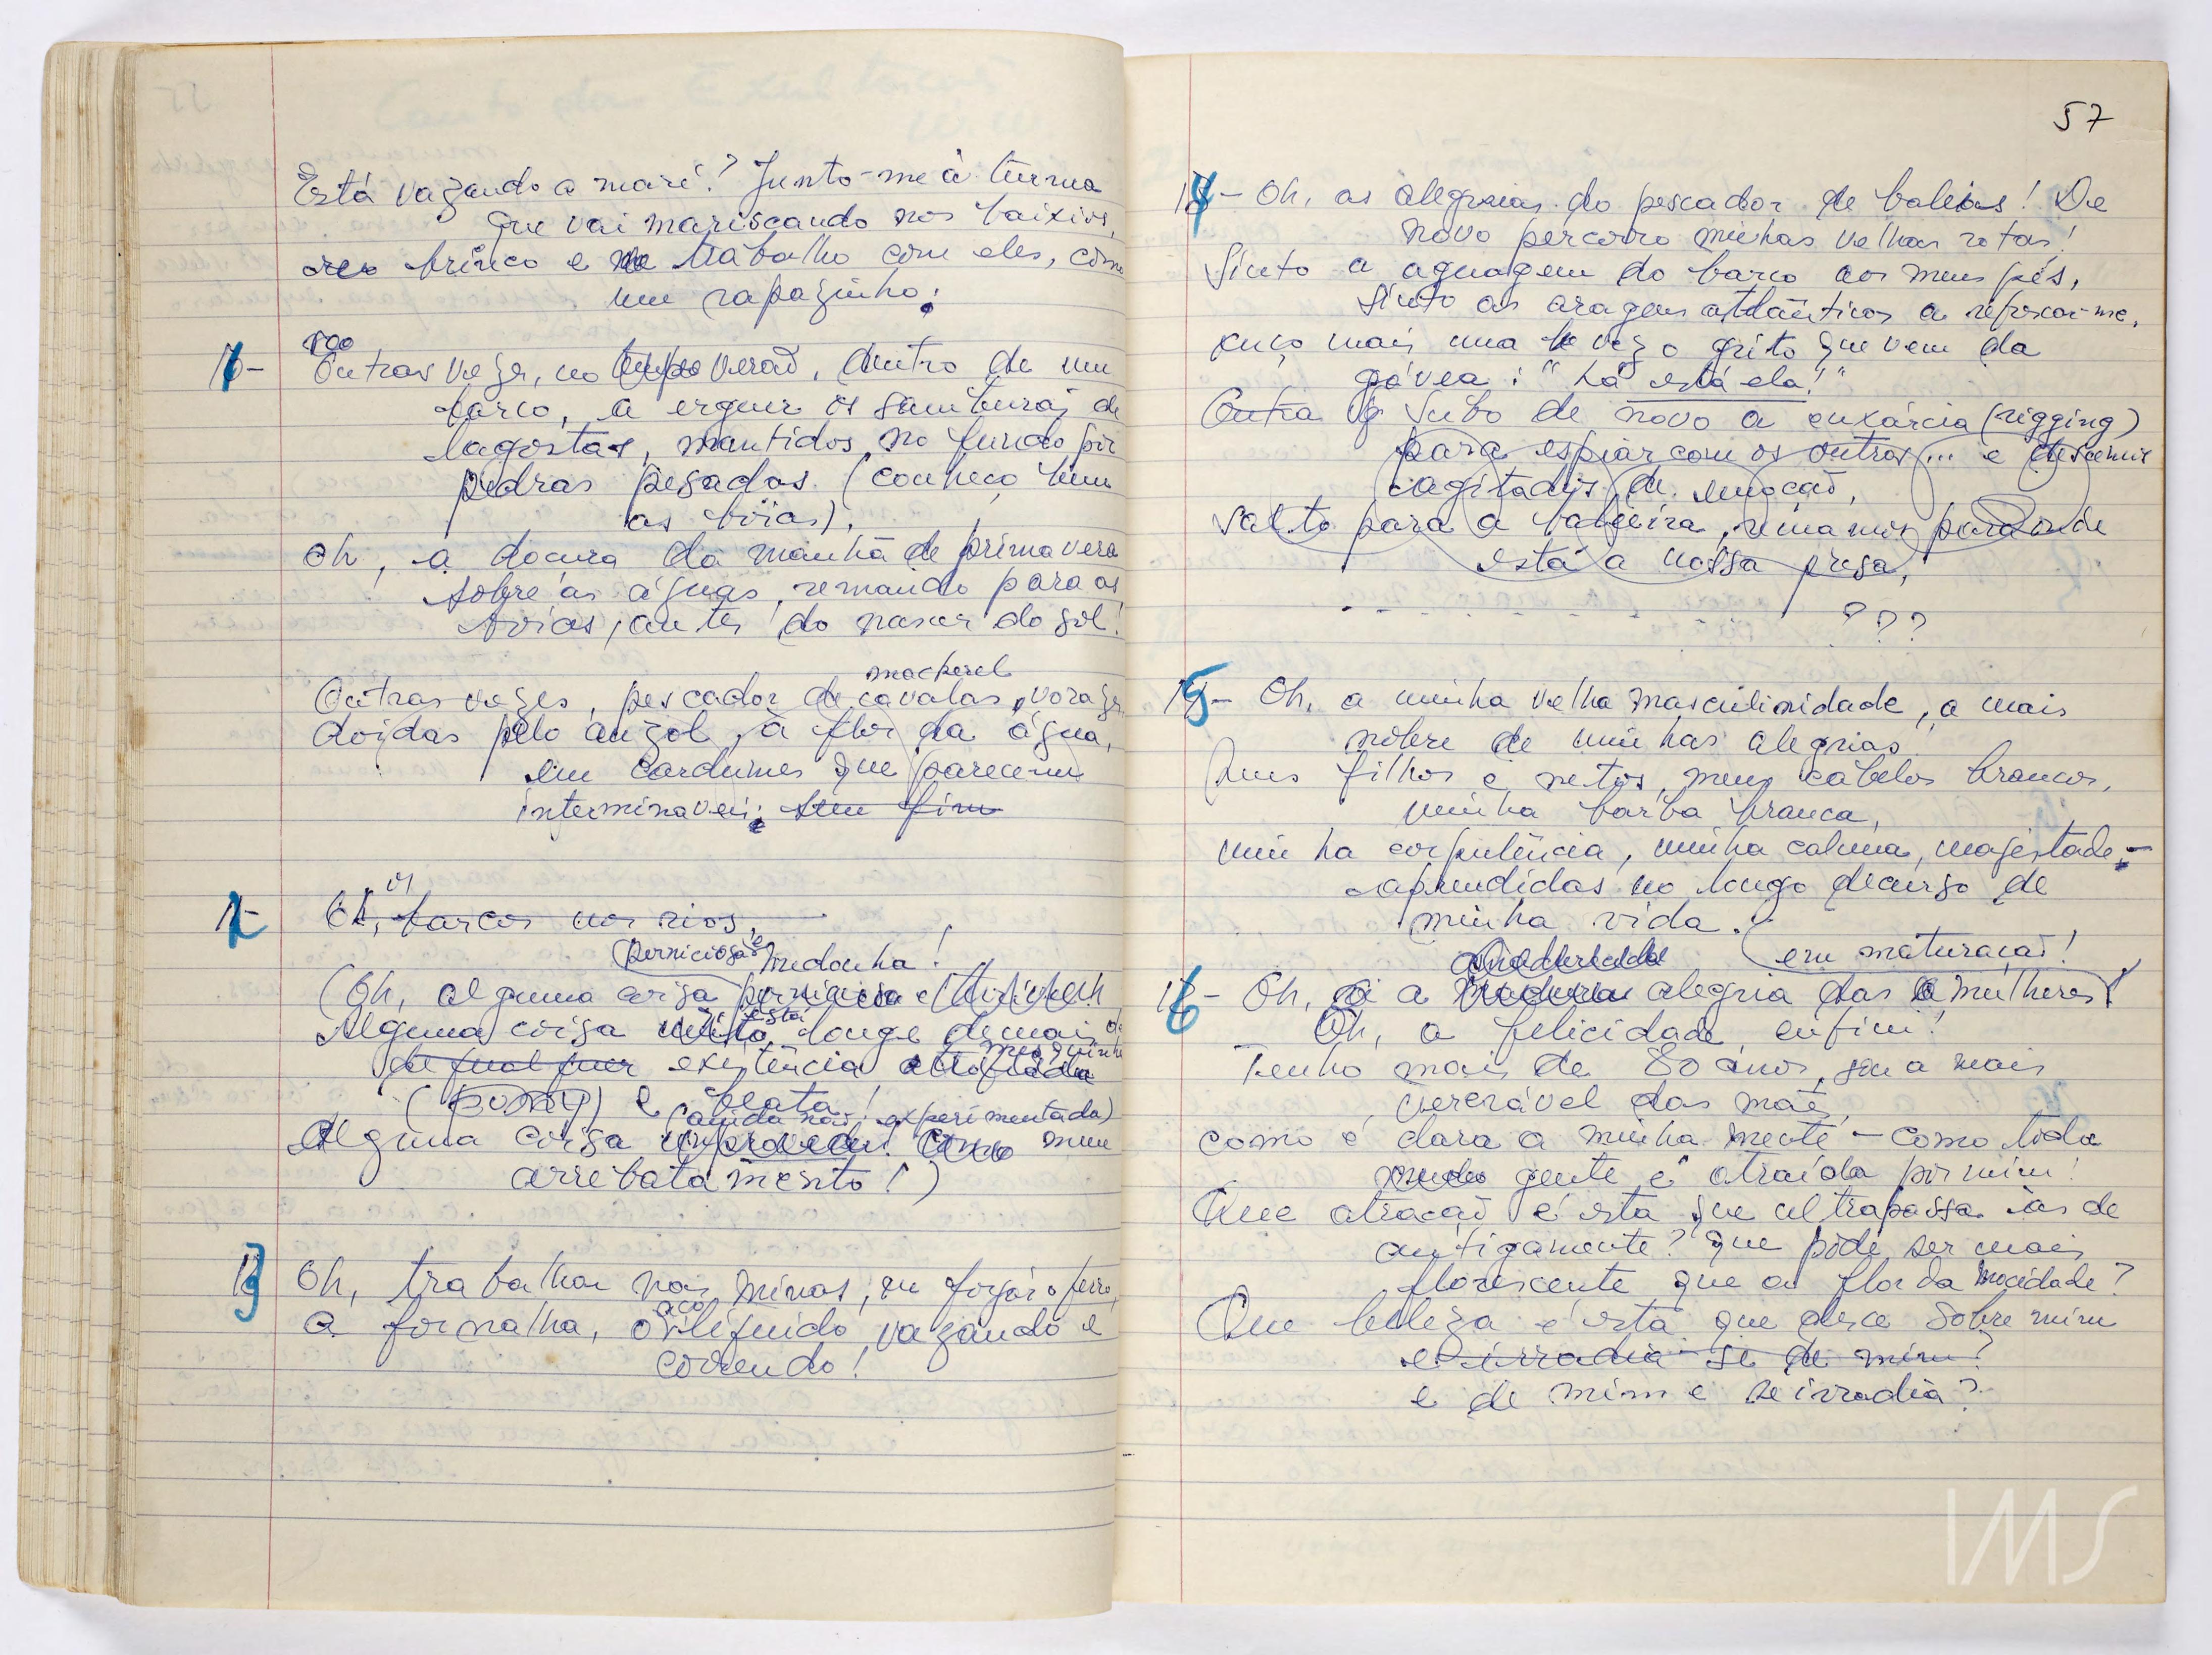 Está vazando a maré? Junto-me à turma
que vai mariscando nos baixios,
brinco e trabalho com eles, como
um rapazinho;
11-
Outras vezes, no verão, dentro de um
barco, a erguer os samburás de
lagostas, mantidos no fundo por
pedras pesadas. (Conheço bem
as bóias).
Oh, a doçura da manhã de primavera
sobre as águas, remando para as
bóias, antes do nascer do sol!
mackerel
Outras vezes, pescador de cavalas, vorazes,
doidas pelo anzol, à flor da água,
em cardumes que parecem
intermináveis; sem fim
12-
Oh, barcos nos rios,
perniciosa e medonha!
(Oh, alguma coisa perniciosa e
Alguma coisa está longe demais da
de qualquer existência mesquinha
(puny) e beata!
(ainda não experimentada)
Alguma coisa num
arrebatamento!)
13
Oh, trabalhar nas minas, ou forjar o ferro,
aço
A fornalha, o liquido, vazando e
correndo!
57
14- Oh, as alegrias do pescador de baleias! De
novo percorro minhas velhas rotas!
Sinto a aguagem do barco aos meus pés,
Sinto as aragens atlânticas a refrescar-me,
ouço mais uma vez o grito que vem da
gávea: "Lá está ela!"
Outra Subo de novo a enxárcia (rigging)
para espiar com os outros... e descemos
agitados de emoção,
Salto para a baleeira, remamos para onde
está a nossa presa,
- - - - - - - ???
15- Oh, a minha velha masculinidade, a mais
nobre de minhas alegrias!
Meus filhos e netos, meus cabelos brancos,
minha barba branca,
minha corpulência, minha calma, majestade,-
aprendidas no longo decurso de
minha vida.
em maturação!
16- Oh, a alegria das mulheres!
Oh, a felicidade, enfim!
Tenho mais de 80 anos, sou a mais
venerável das mães,
como é clara a minha mente - como toda
gente é atraída por mim!
Que atração é esta que ultrapassa as de
antigamente? que pode ser mais
florescente que a flor da mocidade?
Que beleza é esta que desce sobre mim
e irradia-se de mim?
e de mim e se irradia?
IMS